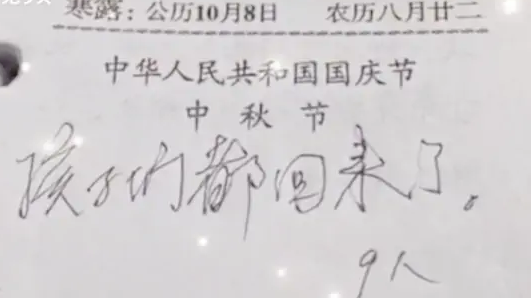 寒露：公历10月8日 农历八月廿二
中华人民共和国国庆节
中秋节
孩子们都回来了。
9人